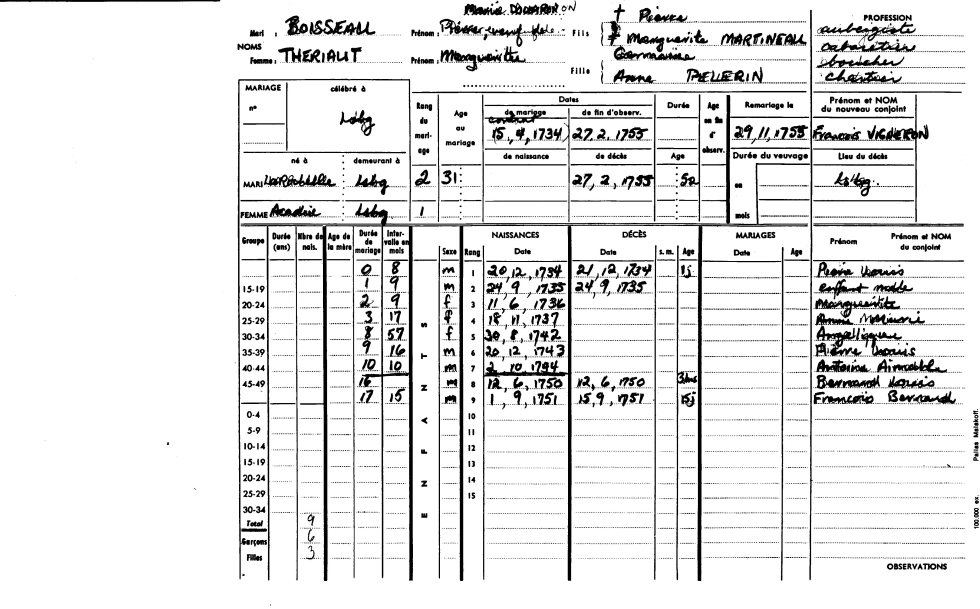 Marie
Mari : BOISSEAU Prénom : Pierre, veuf de Fils † Pierre PROFESSION
NOMS † Marguerite MARTINEAU aubergiste
Femme : THERIAUT Prénom : Marguerite Germain cabaretier
Fille Anne PELLERIN boucher
chartier
MARIAGE célébré à Rang du mariage Age au mariage Dates Durée Age en fin d' observ. Remariage le Prénom et NOM du nouveau conjoint
n° Lsbg de mariage de fin d'observ.
contrat
15, 4, 1734 27, 2, 1755 29, 11, 1755 Francois VIGNERON
né à demeurant à de naissance de décès Age Durée du veuvage Lieu du décès
MARI Lsbg 2 31 27, 2, 1755 52 en Lsbg.
FEMME Acadie Lsbg 1 mois
Groupe Durée (ans) Nbre de nais. Age de la mère Durée de mariage Intervalle en mois ENFANTS Sexe Rang NAISSANCES Date DÉCÈS Date s. m. Age MARIAGES Date Age Prénom Prénom et NOM du conjoint
0 8 m 1 20, 12, 1734 21, 12, 1734 1j Pierre Louis
15-19 1 9 m 2 24, 9, 1735 24, 9, 1735 enfant male
20-24 2 9 f 3 11, 6, 1736 Marguerite
25-29 3 17 f 4 18, 11, 1737 Anne
30-34 8 57 f 5 30, 8, 1742 Angelique
35-39 9 16 m 6 20, 12, 1743 Pierre Louis
40-44 10 10 m 7 2, 10, 1744 Antoine Aimable
45-49 16 m 8 12, 6, 1750 12, 6, 1750 Bernard Louis
17 15 m 9 1, 9, 1751 15, 9, 1751 15j Francois Bernard
0-4 10
5-9 11
10-14 12
15-19 13
20-24 14
25-29 15
30-34
Total 9
Garçons 6
Filles 3
OBSERVATIONS
100.000 ex. Pallas Malakoff.